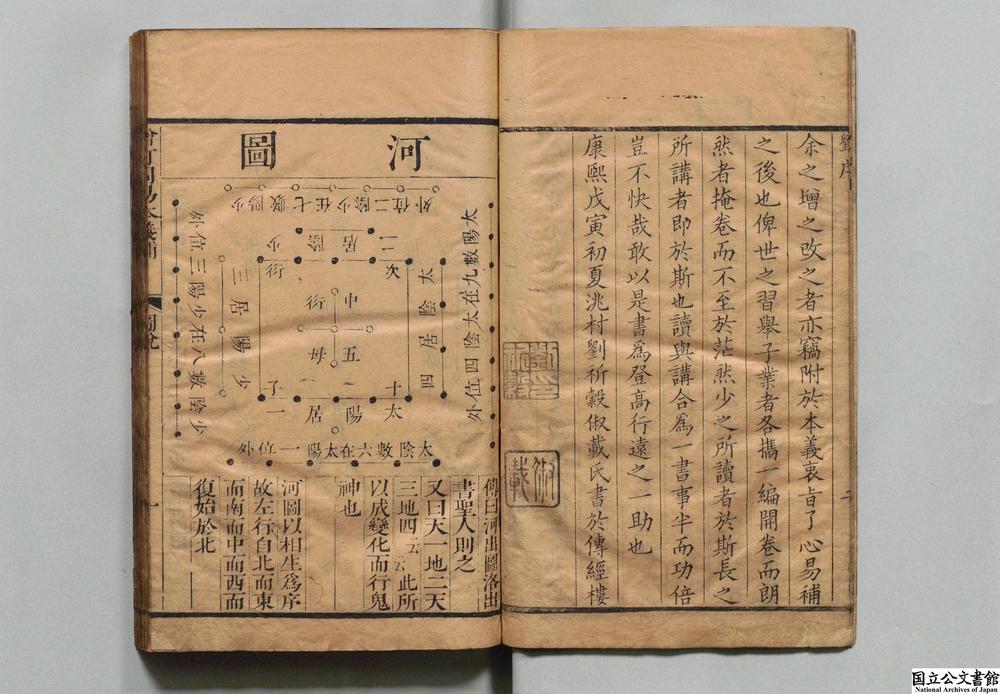 劉序
余之增之改之者亦竊附於本義衷旨了心易補
之後也俾世之習舉子業者各攜一編開卷而朗
然者掩卷而不至於茫然少之所讀者於斯長之
所講者即於斯也讀與講合為一書事半而功倍
豈不快哉敢以是書為登高行遠之一助也
康熙戊寅初夏洮村劉祈穀俶載氏書於傳經樓
二
河圖
外位二陰少在七數陽少
二居陰少
太陽數九在太陰四外位
太陰居四
次
衍
中
五
衍母
十
子
三居陽少
外位三陽少在八數陰少
一居陽太
太陰數六在太陽一位外
傳曰河出圖洛出
書聖人則之
又曰天一地二天
三地四云云此所
以成變化而行鬼
神也
河圖以相生為序
故左行自北而東
而南而中而西而
復始於北
圖說
一
国立公文書館
National Archives of Japan